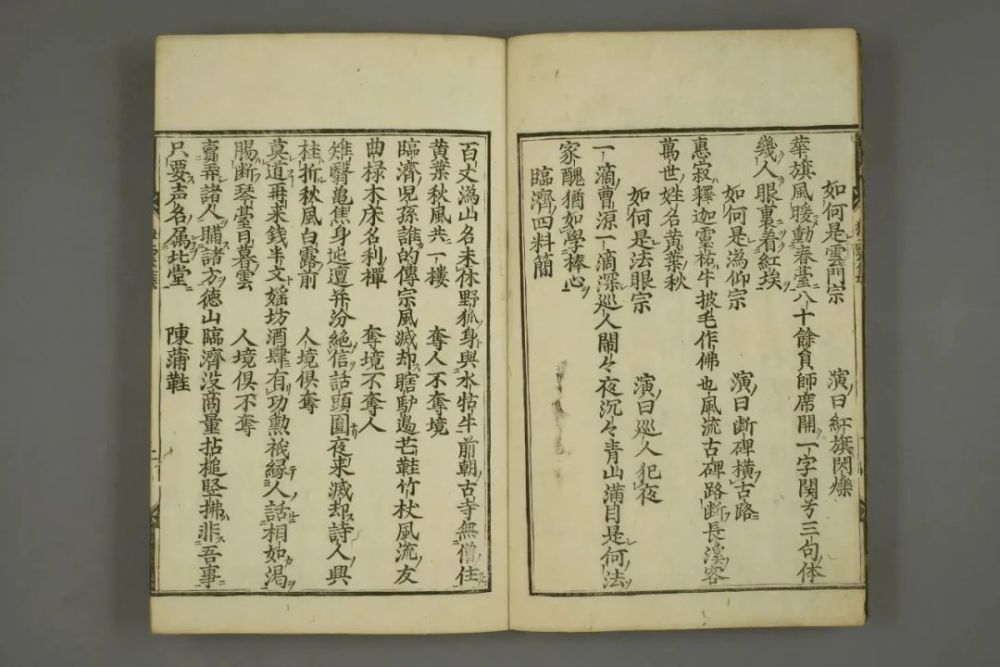 如何是雲門宗 演曰紅旗閃爍
華旗風暖動春臺八十餘負師席開一字関方三句体
幾人眼裏着紅埃
如何是溈仰宗 演曰断碑横古路
惠寂釋迦霊祐牛披毛作佛也風流古碑路断長溪客
萬世姓名黄葉秋
如何是法眼宗 演曰巡人犯夜
一滴曹源一滴深巡人閙々夜沉々青山満目是何法
家醜猶如學捧心
臨濟四料簡
百丈溈山名未休野狐身與水牯牛前朝古寺無僧住
黄葉秋風共一樓 奪人不奪境
臨濟児孫誰的傳宗風滅却瞎馿邉芒鞋竹杖風流友
曲椂木床名利禪 奪境不奪人
雉翳亀焦身迍邅并汾絶信話頭圓夜来滅却詩人興
桂折秋風白露前 人境倶奪
莫道再来銭半文婬坊酒肆有功勲祇縁人話相如渇
腸断琴臺日暮雲 人境倶不奪
賣弄諸人賺諸方德山臨濟没商量拈槌竪拂非吾事
只要声名属北堂 陳蒲鞋